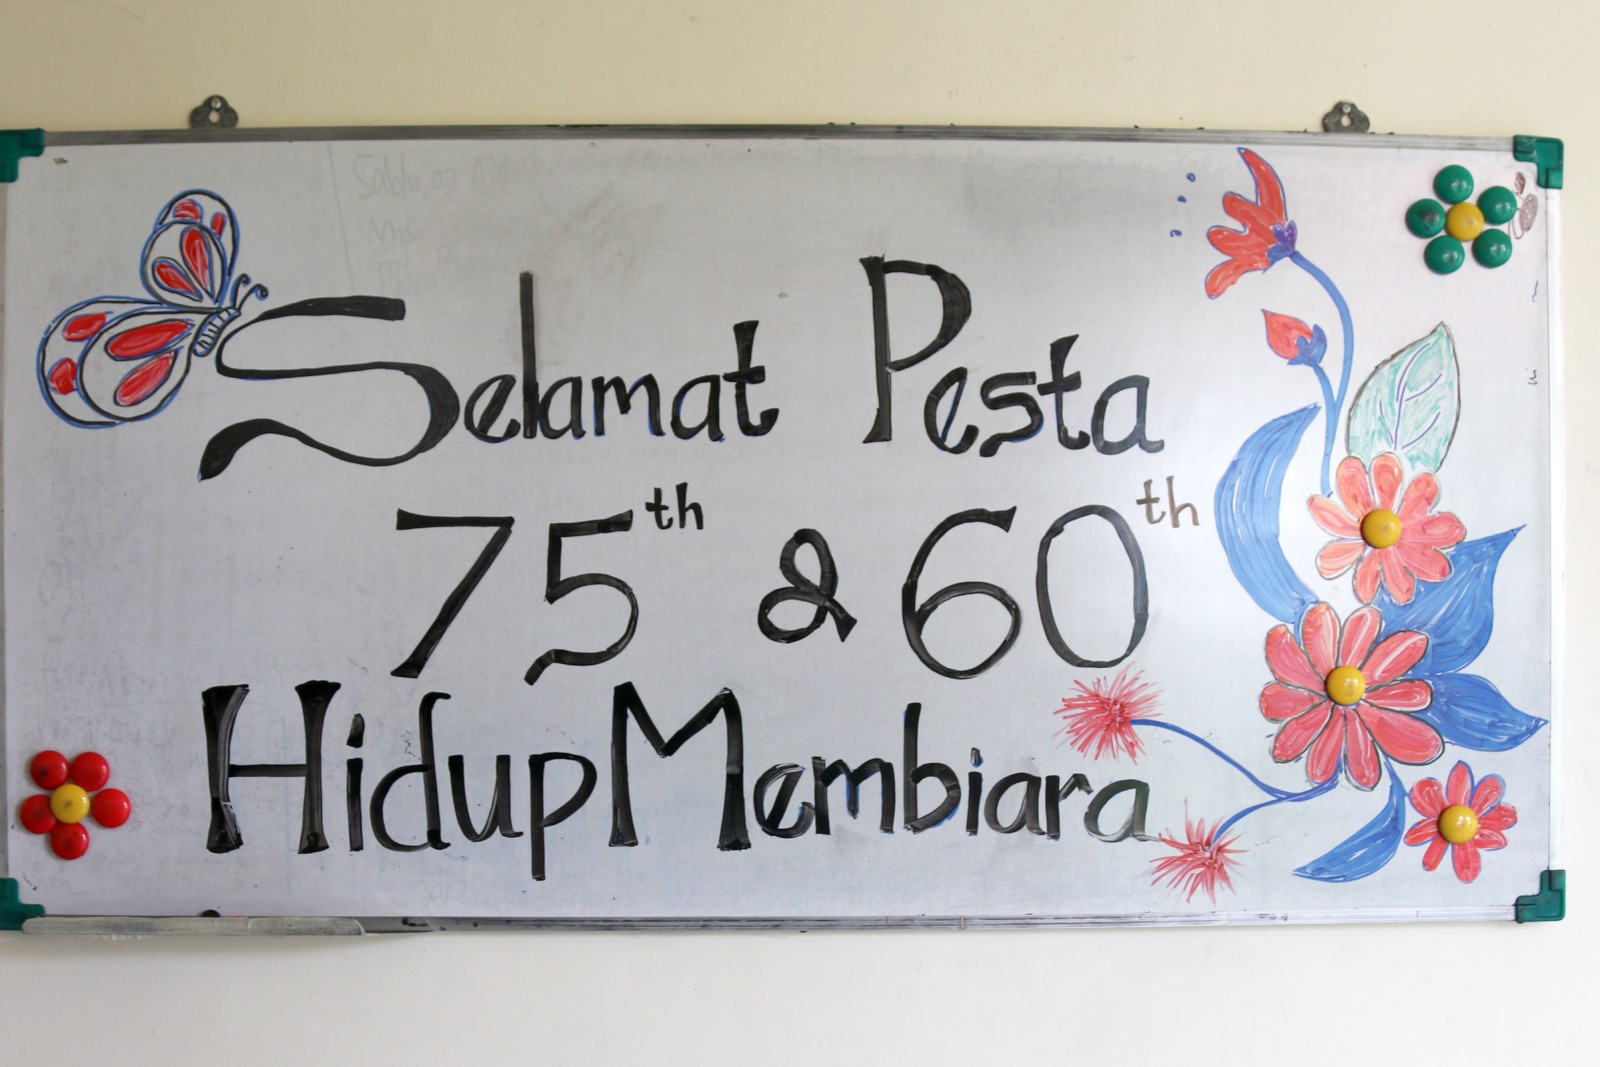 Selamat Pesta
75th & 60th
Hidup Membiara